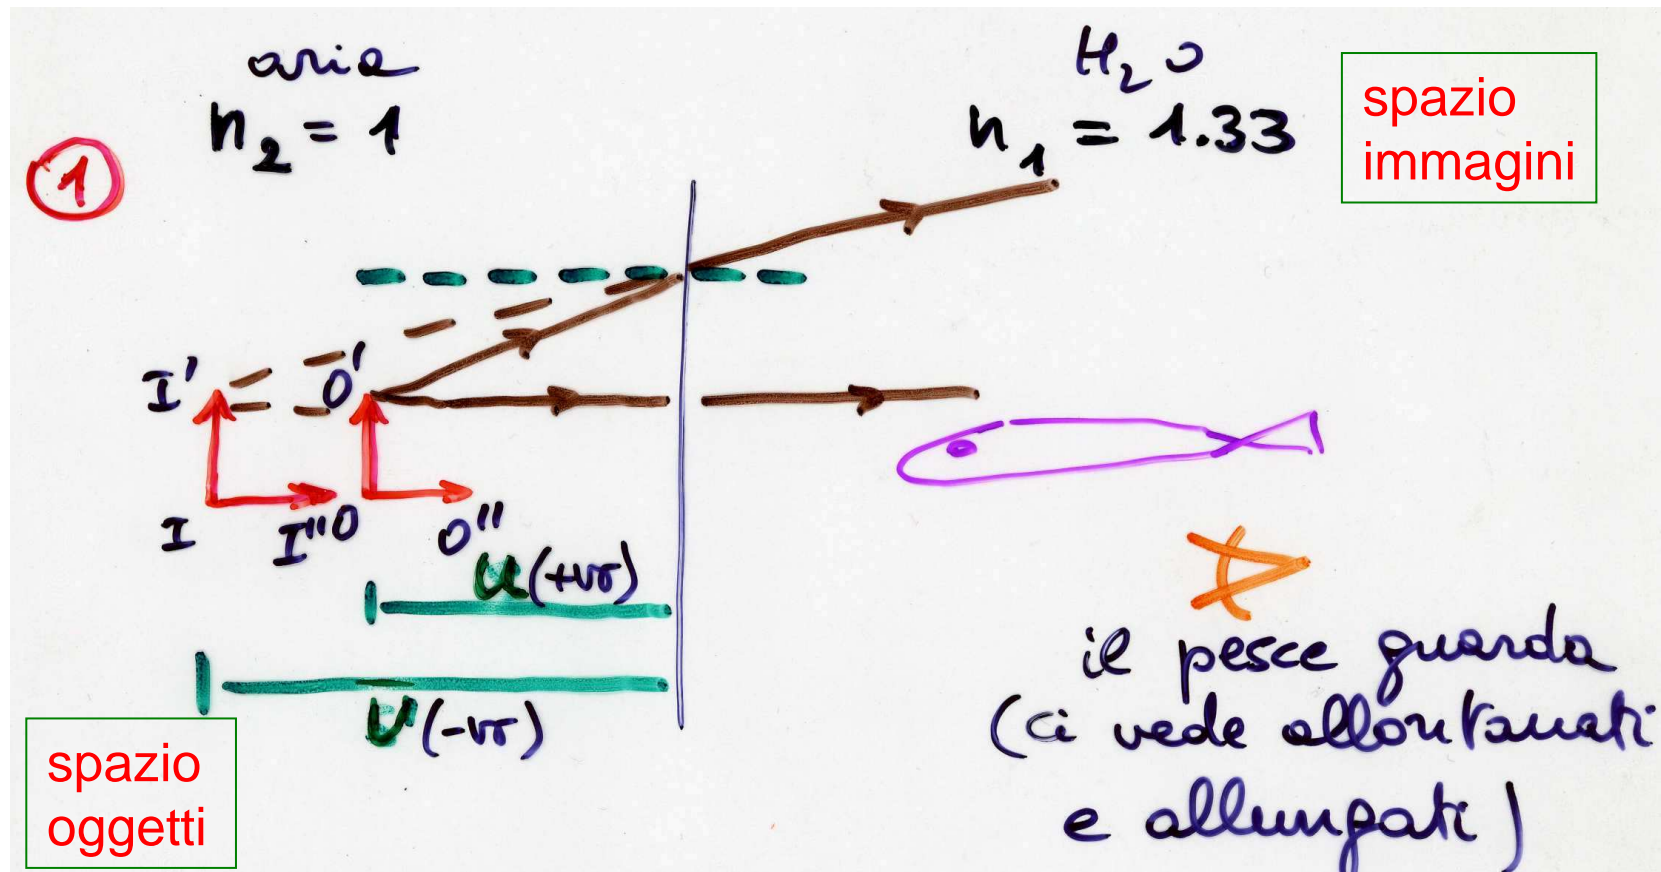 aria
H₂O
n₂ = 1
n₁ = 1.33
spazio
immagini
1
I' O'
I I" O O"
u (+ve)
v (-ve)
il pesce guarda
(ci vede allontanati
e allungati)
spazio
oggetti